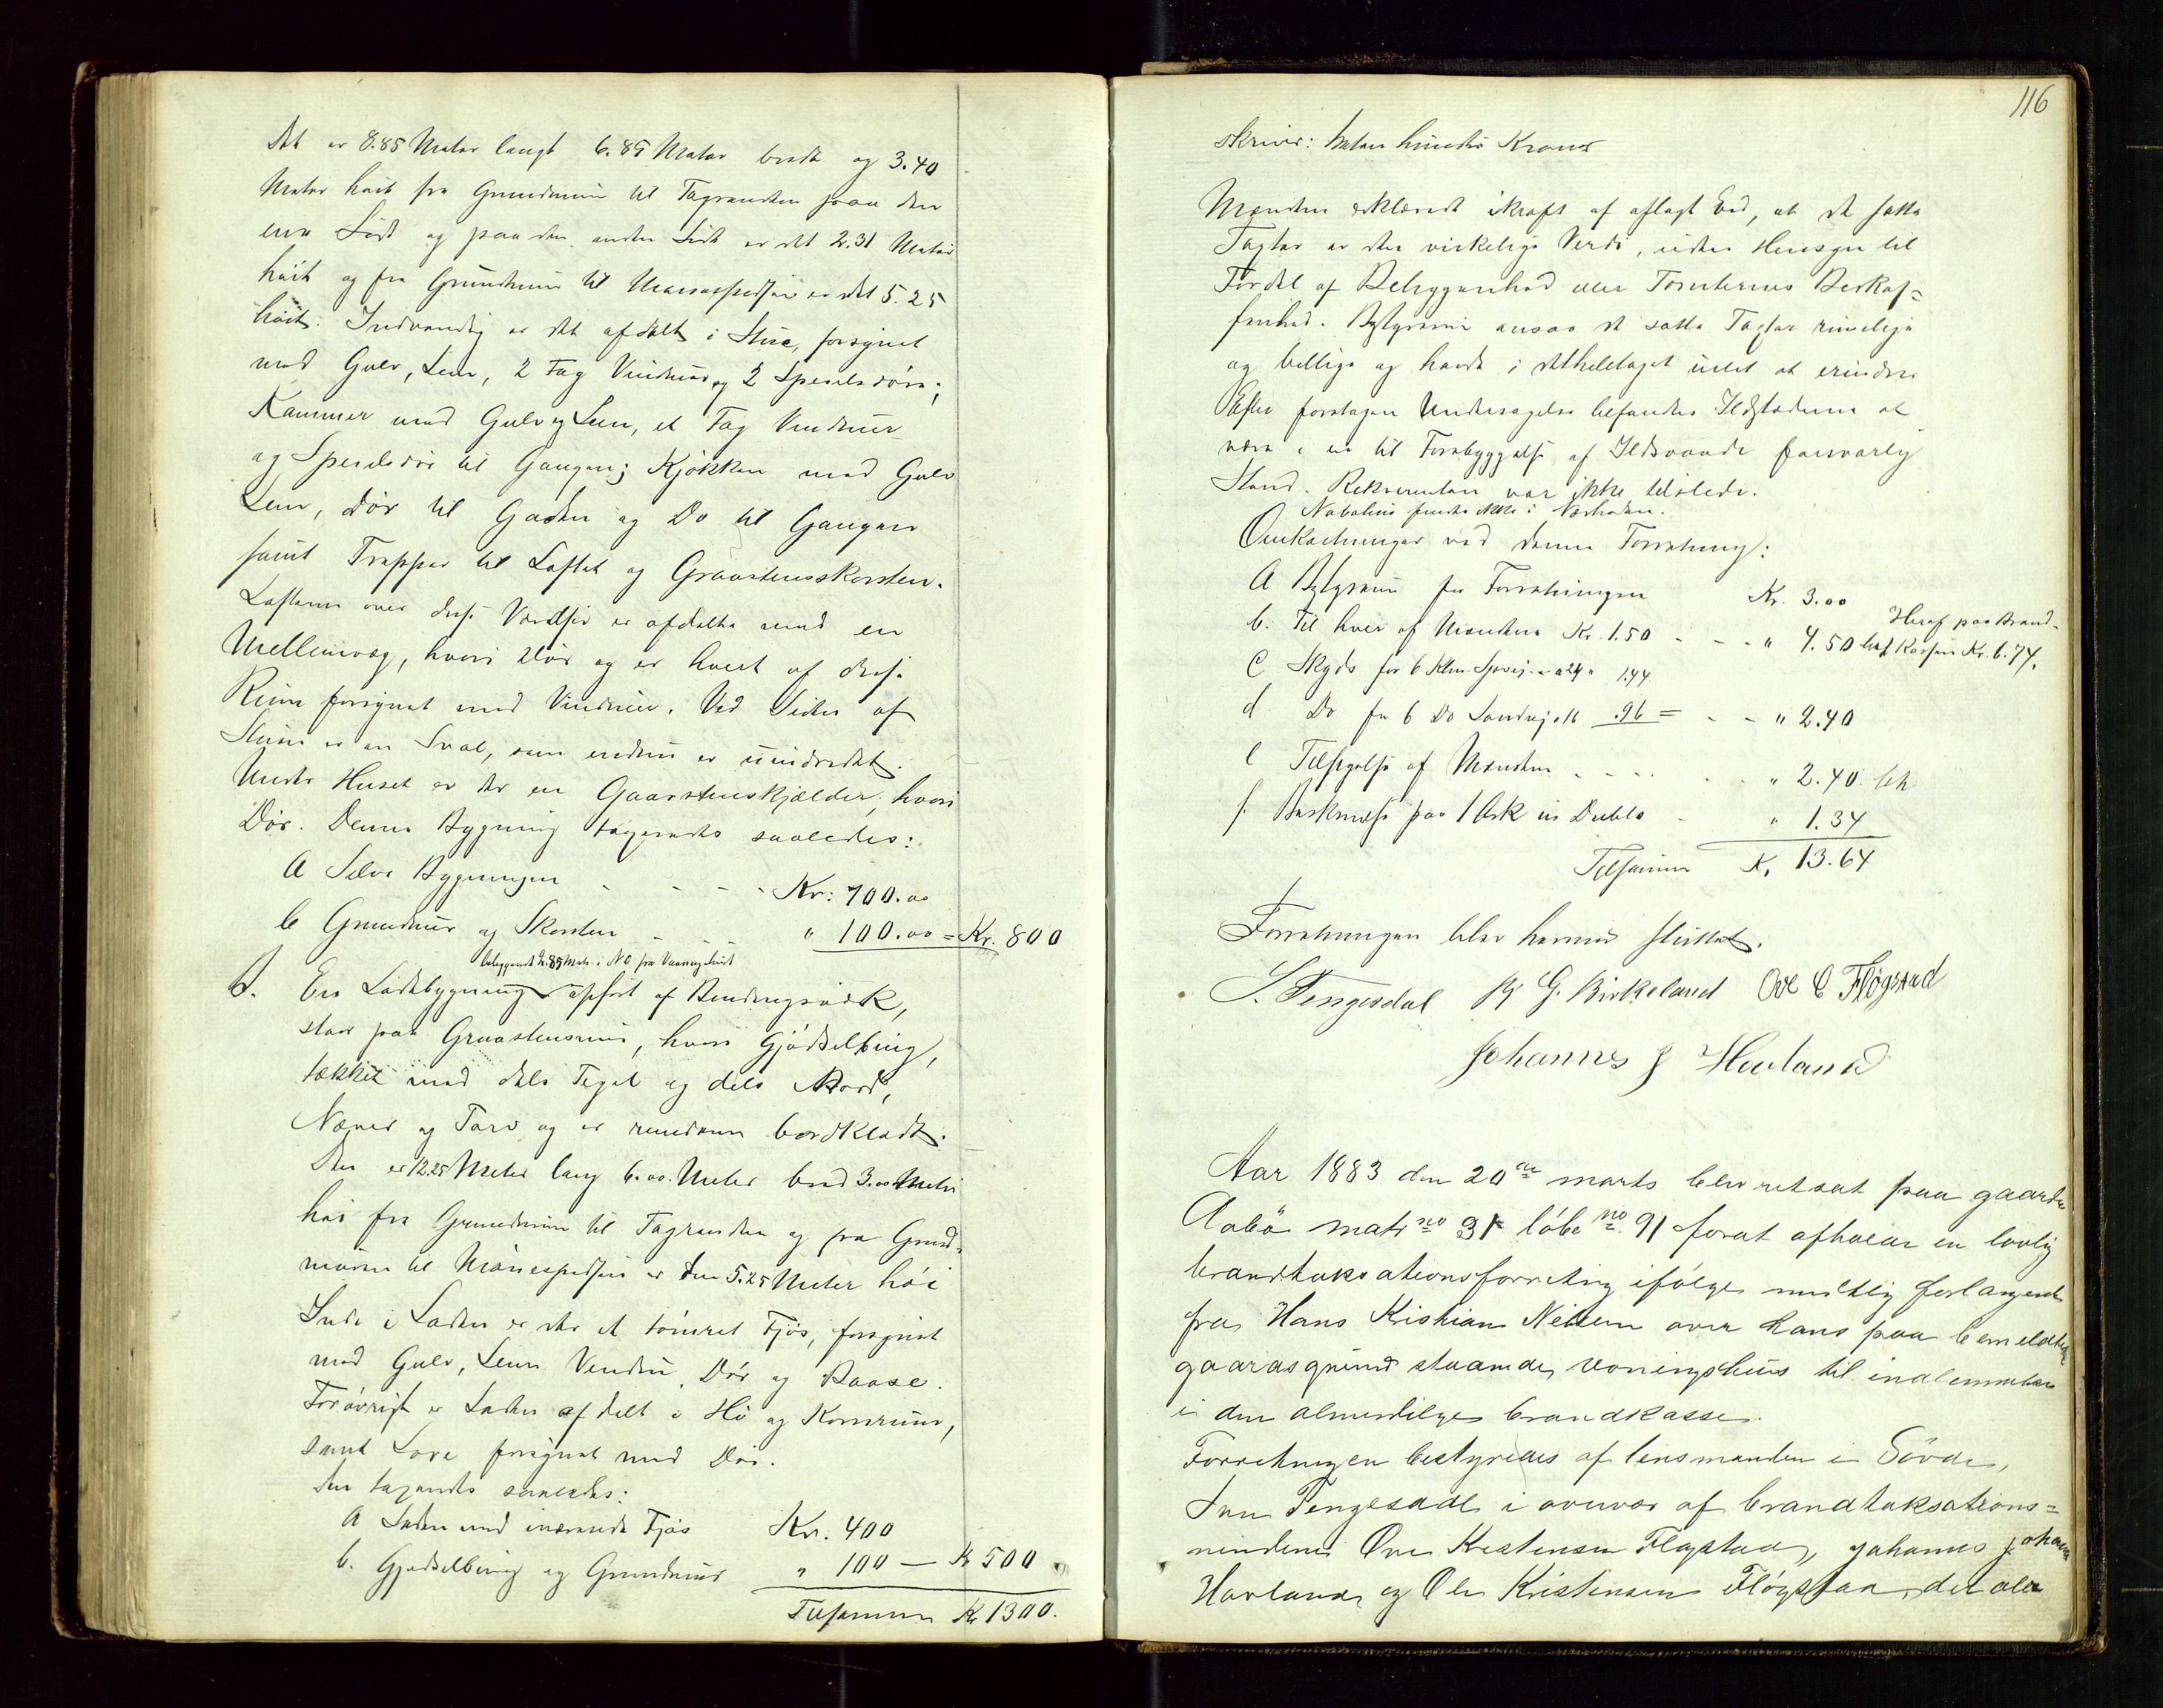 Det er 8.85 Meter langt 6.85 Meter bredt og 3.40
Meter høit fra Grundmuren til Tagranden paa den
ene Side og paa den anden Side er det 2.31 Meter
høit og fra Grundmuren til Mønespidsen er det 5.25
høit. Indvendig er det afdelt i Stue, forsynet
med Gulv, Lem, 2 Fag Vinduer og 2 Speilsdøre;
Kammer med Gulv og Lem, et Fag Vinduer
og Speilsdør til Gangen; Kjøkken med Gulv
Lem, dør til Gaden og Do til Gangen
samt Trapper til Loftet og Graastensskorsten.
Lofterne over disse Værelser er afdelte med en
Mellemvæg, hvori dør og er hvert af disse
Rum forsynet med Vinduer. Ved Siden af
Stuen er en Sval, som endnu er uindredet.
Under Huset er der en Gaarstenskjælder, hvori
Dør. Denne Bygning taxeredes saaledes:
A Selve Bygningen - - - - Kr: 700.00
b Grundmur og Skorsten - " 100.00 = Kr. 800
beliggende 2.85 Meter i NO fra Vaaningshuset
B. En Ladebygning opført af Bindingsværk,
staar paa Graastensmur, hvori Gjødselbing,
tækket med dels Tegel og dels Bord,
Næver og Torv og er rundom bordklædt.
Den er 12.25 Meter lang 6.00 Meter bred 3.00 Meter
høi fra Grundmuren til Tagranden og fra Grund-
muren til Mønespidsen er den 5.25 Meter høi
Inde i Laden er der et tømret Fjøs, forsynet
med Gulv, Lem Vindu, Dør og Baase.
Forøvrigt er Laden afdelt i Hø og Kornrum,
samt Love forsynet med Dør.
Den taxeredes saaledes:
A Laden med indværende Fjøs Kr. 400
b. Gjødselbing og Grundmur " 100 — Kr 500
Tilsammen Kr 1300.
116
skriver: tretten hundre Kroner
Mændene erklærede ikraft af aflagt Ed, at de satte
Taxter er den virkelige Verdi, uden Hensyn til
Fordel af Beliggenhed eller Tomternes Beskaf=
fenhed. Bestyreren ansaa de satte Taxter rimelige
og billige og havde i detheletaget intet at erindre
Efter foretagen Undersøgelse befandtes Ildstederne at
være i en til Forebyggelse af Ildsvaade forsvarlig
Stand. Rekvirenten var ikke tilstede.
Nabohuse findes ikke i Nærheden.
Omkostninger ved denne Forretning:
A Bestyreren for Forretningen Kr. 3.00
b. Til hver af Mændene Kr. 1.50 - - - " 4.50
Heraf paa Brand-
Kassen Kr. 6.74.
C Skyds for 6 Klm. Sjøvej - a 24 " 1.44
d Do for 6 Do Landvej a 16 .96 = - - " 2.40
e Tilsigelse af Mændene - - - - " 2.40
f. Beskrivelse paa 1 Ark in Dublo - " 1.34
Tilsammen Kr 13.64
Forretningen blev hermed sluttet.
S. Tengesdal B G. Birkeland Ove C Fløgstad
Johannes J Hovland
Aar 1883 den 20de marts blev retsat paa gaarden
Aabø matr no 31 løbe no 91 forat afholde en lovlig
brandtaksationsforretning ifølge mundtlig forlangende
fra Hans Kristian Nilsen over hans paa bemeldte
gaardsgrund staaende vaaningshus til indlemmelse
i den almindelige brandkasse.
Forretningen bestyredes af lensmanden i Søvde,
Tengesdal i overvær af brandtaksations=
mændene Ove Kristensen Fløgstad, Johannes Johannes
Hovland og Ole Kristensen Fløgstad, der alle